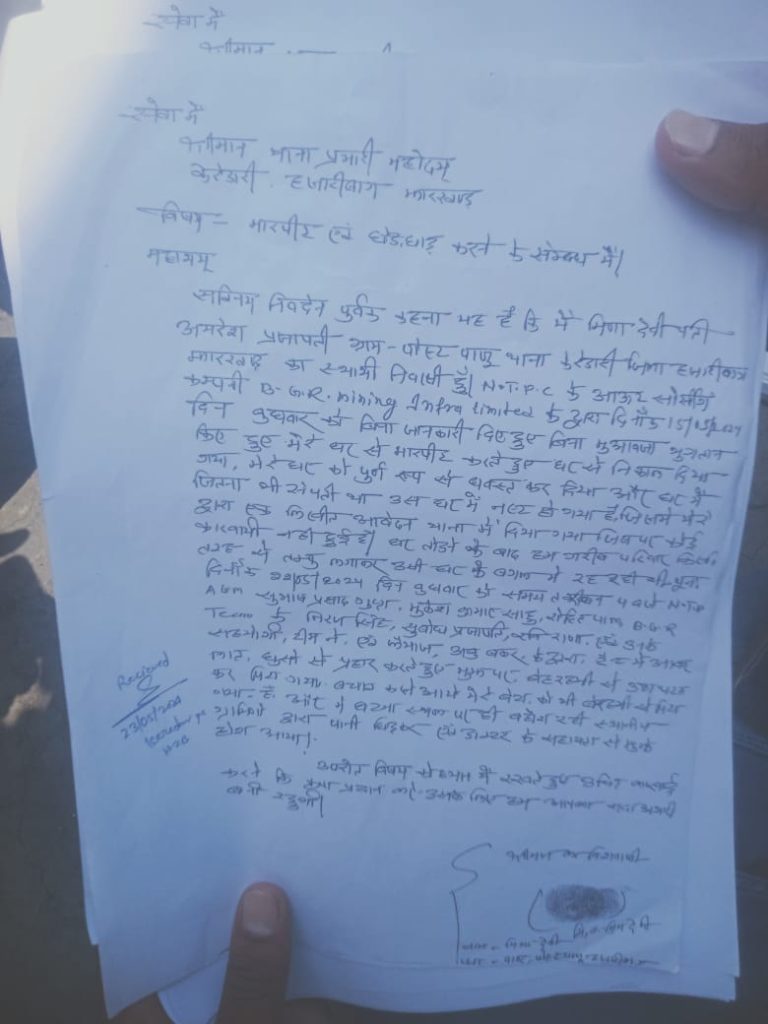 सेवा में
श्रीमान
सेवा में
श्रीमान थाना प्रभारी महोदय
केरेडारी, हजारीबाग झारखण्ड
विषय - मारपीट एवं छेड़छाड़ करने के संबंध में।
महाशय
सविनय निवेदन पूर्वक कहना यह है कि मैं मिना देवी पति
अमरेश प्रजापती ग्राम-पोस्ट पाण्डू थाना केरेडारी जिला हजारीबाग
झारखण्ड का स्थायी निवासी हूँ। N.T.P.C के आउट सोर्सिंग
कम्पनी B.G.R. mining Infra limited के द्वारा दिनाँक 15/05/2024
दिन बुधवार को बिना जानकारी दिए हुए बिना मुआवजा भुगतान
किए हुए मेरे घर से मारपीट करते हुए घर से निकाल दिया
गया, मेरे घर को पुर्ण रूप से ध्वस्त कर दिया और घर में
जितना भी संपती था उस घर में नष्ट हो गया है, जिसमें मेरे
द्वारा एक लिखीत आवेदन थाना में दिया गया जिसपर कोई
कारवाही नही हुई है। घर तोडने के बाद हम गरीब परिवार किसी
तरह से तम्बु लगाकर उसी घर के बगल में रह रही थी पुनः
दिनाँक 22/05/2024 दिन बुधवार को समय 4 बजे N.T.P
AGM सुभाष प्रसाद गुप्ता, मुकेश कुमार साहु, रोहित पाल B.G.R
Team के सिंह, सुबोध प्रजापति, रवि राणा एवं उनके
सहयोगी, टीम ने, एवं अबु बकर के द्वारा, में आकर
लात, घुसो से प्रहार करते हुए मुझपर, से
कर दिया गया। बचाव करने आये मेरे बेटा को भी से
गया है। और मैं घटना स्थल पर ही बेहोश रही स्थानीय
ग्रामिणो द्वारा पानी छिड़कर एवं डॉक्टर के सहायता से मुझे
होश आया।
विषय को ध्यान में रखते हुए उचित कारवाई
करने कि कृपा प्रदान करें उसके लिए हम आपका सदा आभारी
बनी रहुंगी।
Recieved
23/05/2024
श्रीमान का विश्वासी
मिना देवी
नाम - मिना देवी